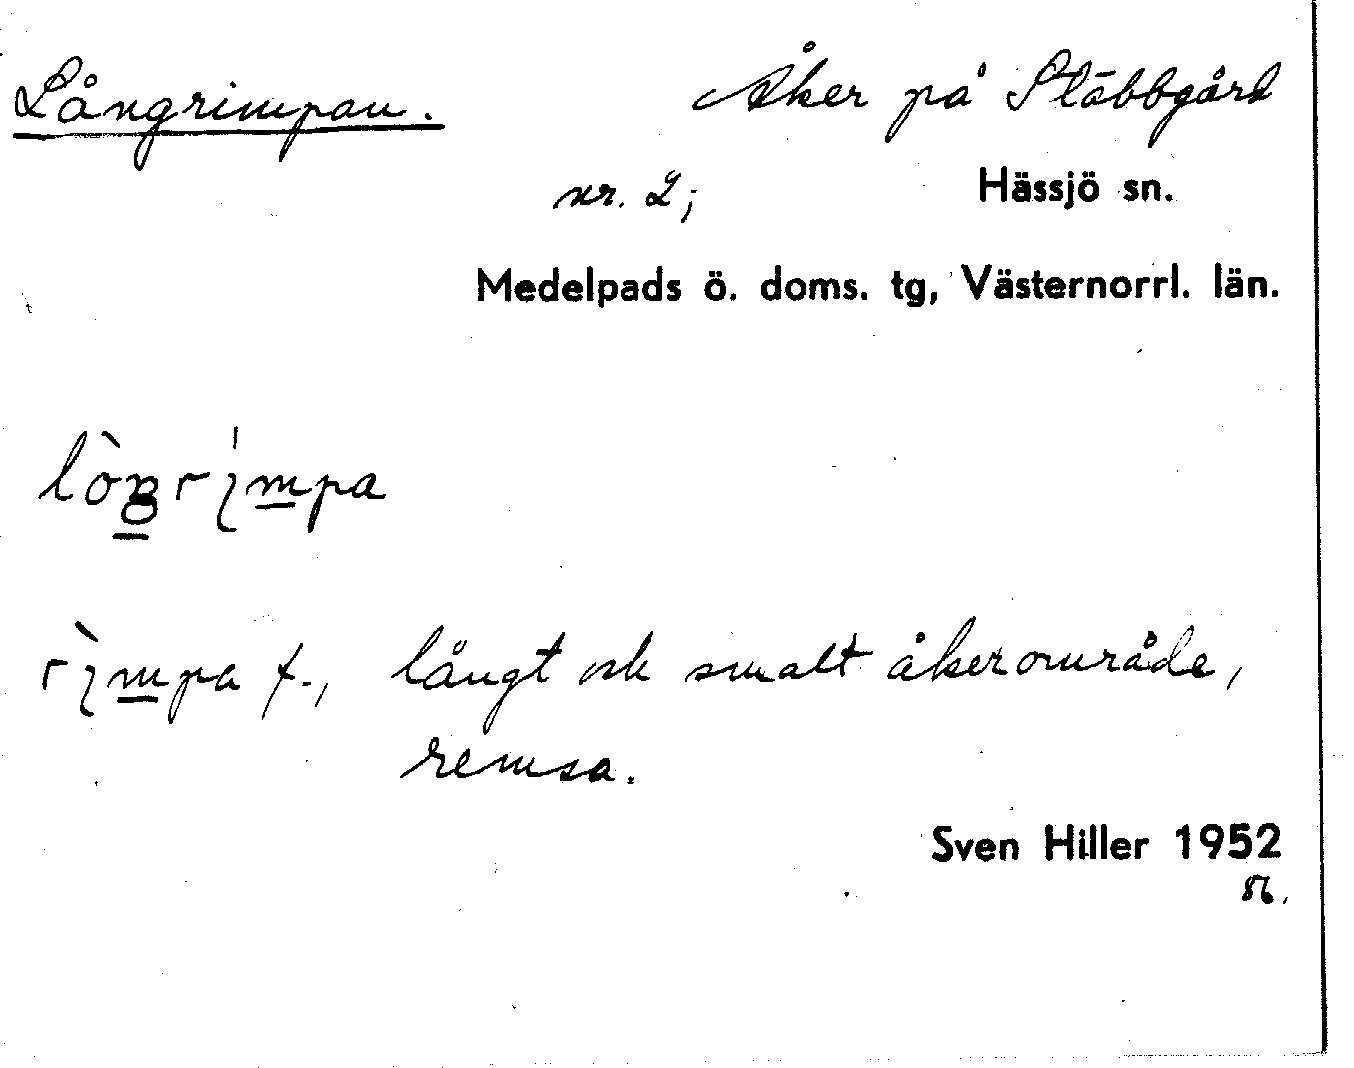 Långrimpan. Åker på Stäbbgård
nr. 2; Hässjö sn.
Medelpads ö. doms. tg, Västernorrl. län.
lòŋrımpa
rı̀mpa f., långt och smalt åkerområde,
remsa.
Sven Hiller 1952